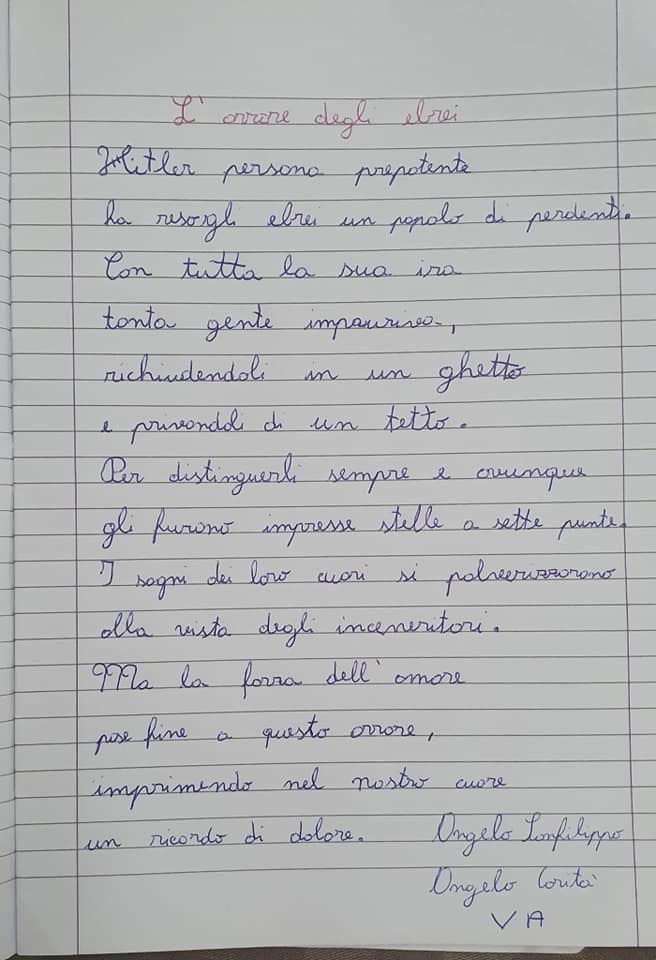 L'orrore degli ebrei
Hitler persona prepotente
ha reso gli ebrei un popolo di perdenti.
Con tutta la sua ira
tanta gente impauriva,
richiudendoli in un ghetto
e privandoli di un tetto.
Per distinguerli sempre e ovunque
gli furono impresse stelle a sette punte.
I sogni dei loro cuori si polverizzarono
alla vista degli inceneritori.
Ma la forza dell'amore
pose fine a questo orrore,
imprimendo nel nostro cuore
un ricordo di dolore. Angelo Sanfilippo
Angelo Carità
V A